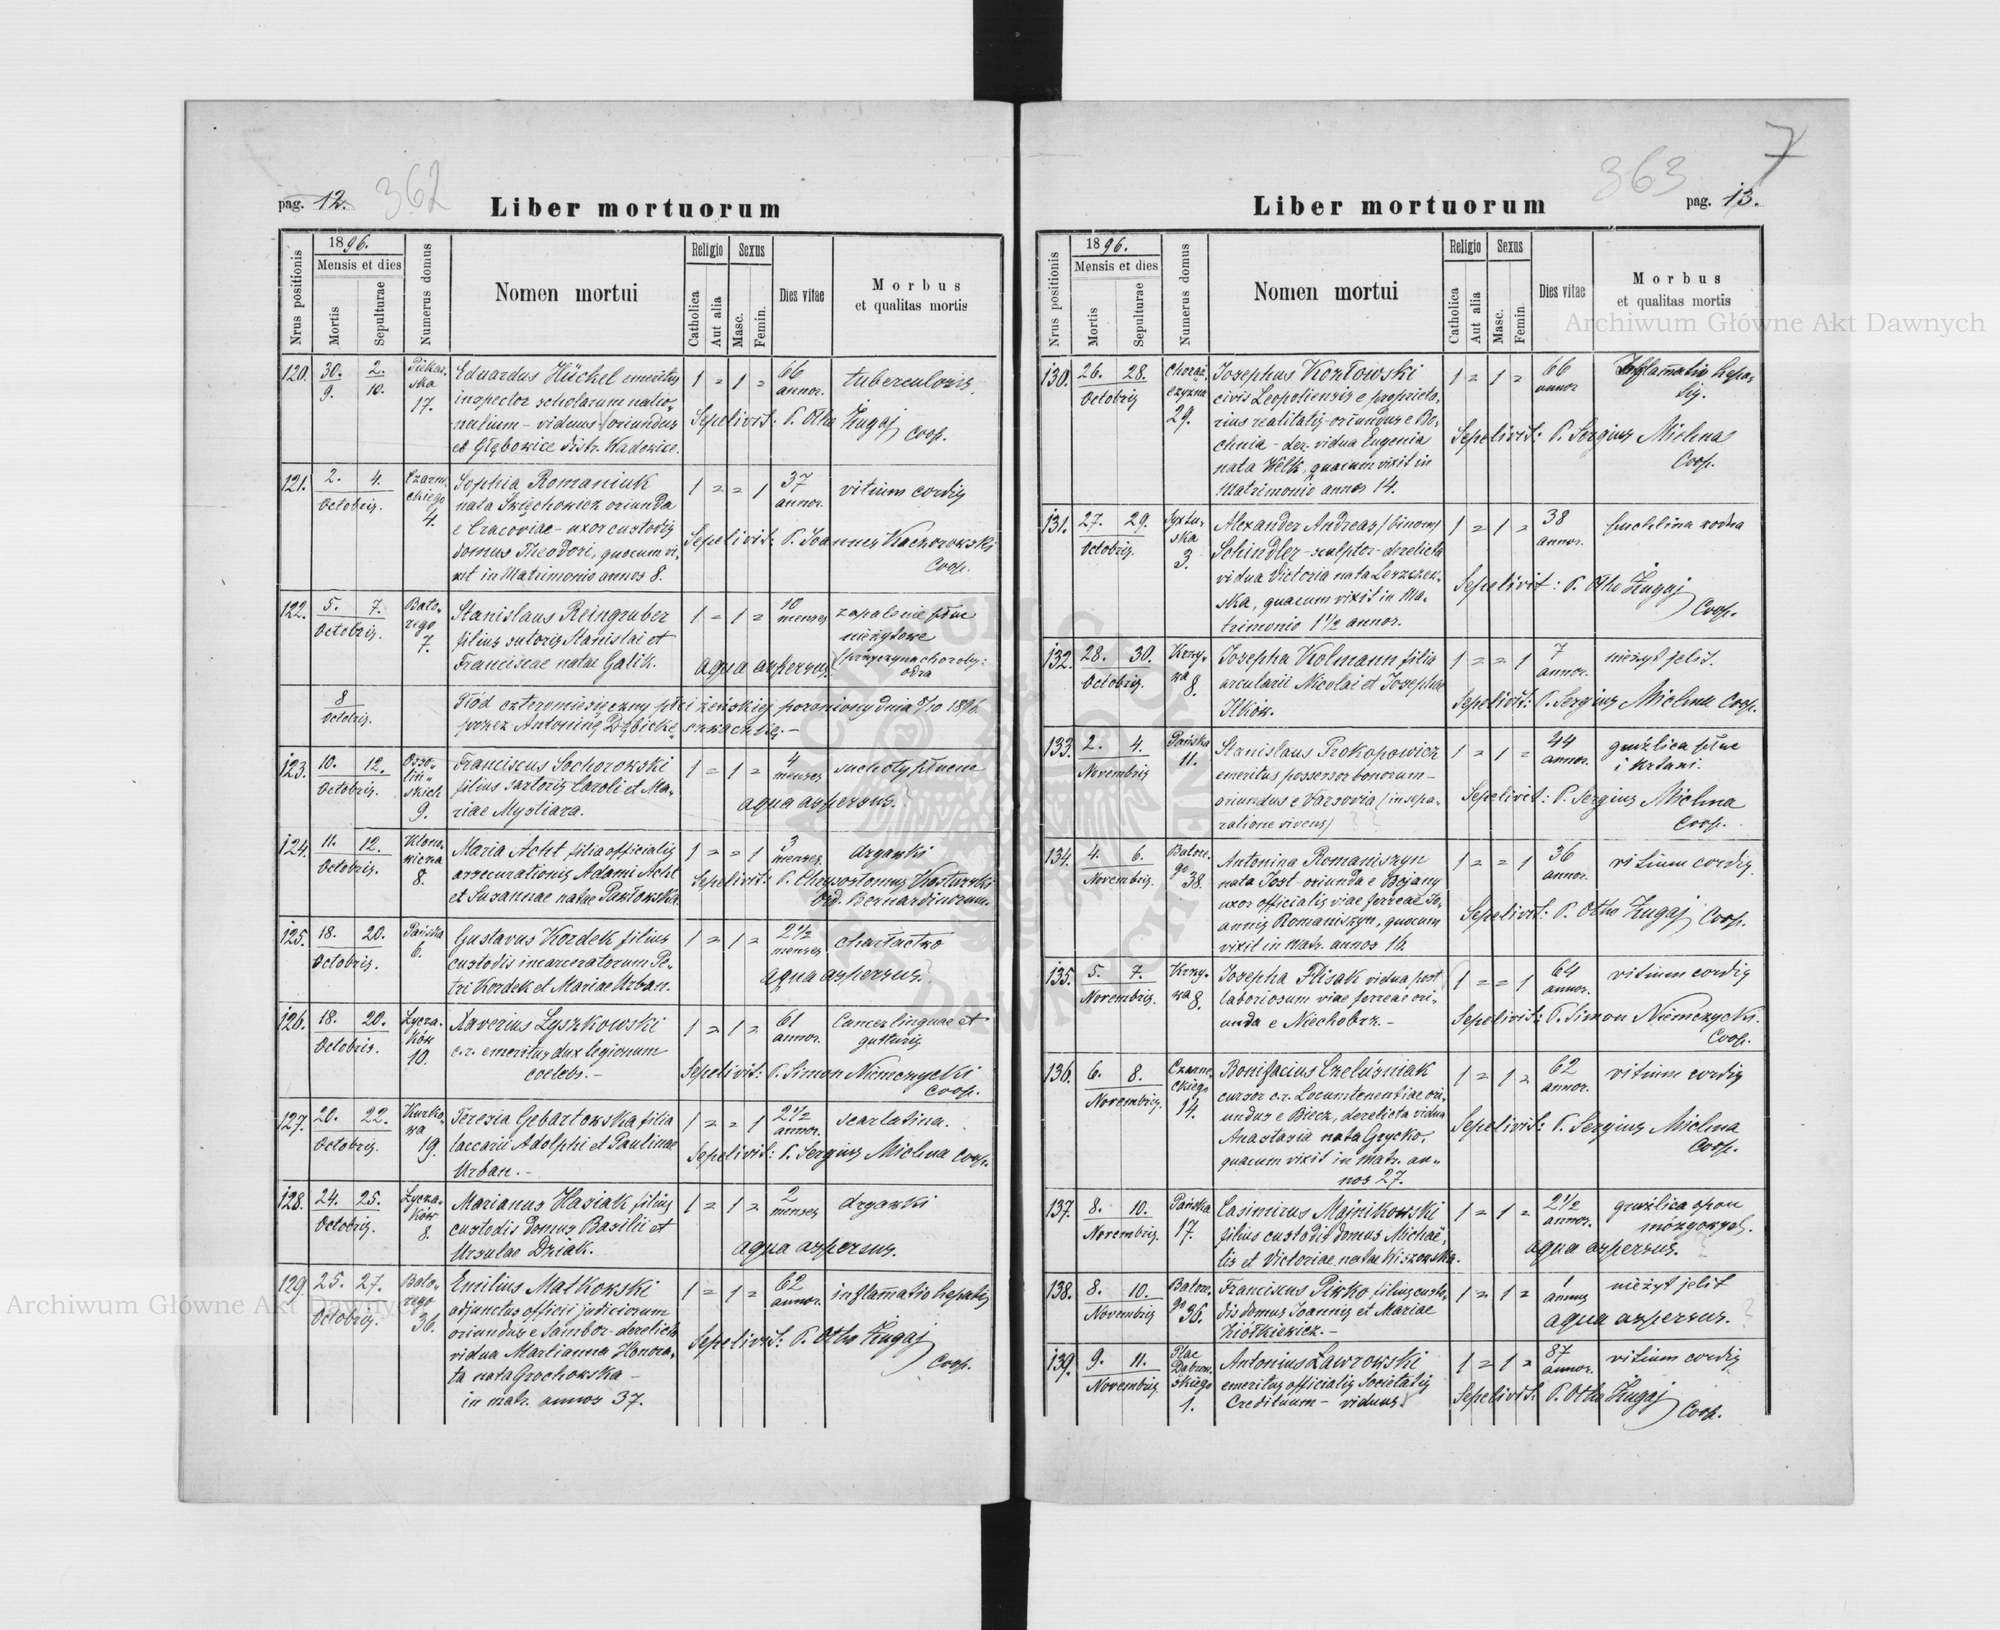 pag. 12. 362
Liber mortuorum
Nrus positionis
1896.
Mensis et dies
Mortis
Sepulturae
Numerus domus
Nomen mortui
Religio
Catholica
Aut alia
Sexus
Masc.
Femin.
Dies vitae
Morbus
et qualitas mortis
120. 30. 2. Piekar-
9. 10. ska
17.
Eduardus Hückel emeritus
inspector scholarum natio-
nalium – viduus (oriundus
ex Głębowice distr. Wadowice.
1 = 1 = 66
annor. tuberculosis.
Sepelivit: P. Otho Żugaj
Coop.
121. 2. 4. Czarne-
Octobris. ckiego
4.
Sophia Romaniuk
nata Święchowicz oriunda
e Cracoviae – uxor custodis
domus Theodori, quocum vi-
xit in Matrimonio annos 8.
1 = = 1 37
annor. vitium cordis
Sepelivit: P. Joannes Kaczorowski
Coop.
122. 5. 7. Bato-
Octobris. rego
7.
Stanislaus Reingruber
filius sutoris Stanislai et
Franciscae natae Galik.
1 = 1 = 10
menses zapalenie płuc
nieżytowe
(przyczyna choroby:
odra
aqua aspersus.
8
Octobris.
Płód czteromiesięczny płci żeńskiej poroniony dnia 8/10 1896
przez Antoninę Dębicką szwaczkę. –
123. 10. 12. Osso-
Octobris. liń-
skich
9.
Franciscus Sochorowski
filius sartoris Caroli et Ma-
riae Mysliara.
1 = 1 = 4
menses suchoty płucne
aqua aspersus.
124. 11. 12. Klono-
Octobris. wicza
8.
Maria Acht filia officialis
assecurationis Adami Acht
et Susannae natae Pawłowska
1 = = 1 3
menses. drgawki
Sepelivit: P. Chrysostomus
Ord. Bernardinorum.
125. 18. 20. Pańska
Octobris. 6.
Gustavus Kordek filius
custodis incarceratorum Pe-
tri Kordek et Mariae Urban.
1 = 1 = 2 1/2
menses charłactwo
aqua aspersus.
126. 18. 20. Łycza-
Octobris. ków
10.
Xaverius Łyszkowski
c.r. emeritus dux legionum
coelebs. –
1 = 1 = 61
annor. Cancer linguae et
gutturis
Sepelivit: P. Simon Niemczycki
Coop.
127. 20. 22. Kurko-
Octobris. wa
19.
Teresia Gebartowska filia
laccarii Adolphi et Paulinae
Urban. –
1 = = 1 2 1/2
annor. scarlatina.
Sepelivit: P. Sergius Michna Coop.
128. 24. 25. Łycza-
Octobris. ków
8.
Marianus Hasiak filius
custodis domus Basilii et
Ursulae Dziak.
1 = 1 = 2
menses drgawki
aqua aspersus.
129. 25. 27. Bato-
Octobris. rego
36.
Emilius Małkowski
adjunctus officii judiciorum
oriundus e Sambor – derelicta
vidua Martianna Honora-
ta nata Grochowska –
in matr. annos 37.
1 = 1 = 62
annor. inflamatio hepatis
Sepelivit: P. Otho Żugaj
Coop.
7
363
pag. 13.
Liber mortuorum
Nrus positionis
1896.
Mensis et dies
Mortis
Sepulturae
Numerus domus
Nomen mortui
Religio
Catholica
Aut alia
Sexus
Masc.
Femin.
Dies vitae
Morbus
et qualitas mortis
130. 26. 28. Chorąż-
Octobris czyzna
29.
Josephus Kozłowski
civis Leopoliensis e proprieta-
rius realitatis – oriundus e Bo-
chnia – der. vidua Eugenia
nata Welk, quacum vixit in
Matrimonio annos 14.
1 = 1 = 66
annor Inflamatio hepa-
tis.
Sepelivit: P. Sergius Michna
Coop.
131. 27. 29. Syxtu-
Octobris. ska
3.
Alexander Andreas (binom)
Schindler – sculptor – derelicta
vidua Victoria nata Leszczew-
ska, quacum vixit in Ma-
trimonio 1 1/2 annos.
1 = 1 = 38
annor.
Sepelivit: P. Otho Żugaj
Coop.
132. 28. 30. Krzy-
Octobris. wa
8.
Josepha Kolmann filia
arcularii Nicolai et Josepha
Ilków.
1 = = 1 7
annor. nieżyt jelit.
Sepelivit: P. Sergius Michna Coop.
133. 2. 4. Pańska
Novembris 11.
Stanislaus Prokopowicz
emeritus possessor bonorum –
oriundus e Varsovia (in sepa-
ratione vivens)
1 = 1 = 44
annor. gruźlica płuc
i krtani.
Sepelivit: P. Sergius Michna
Coop.
134. 4. 6. Batore-
Novembris. go
38.
Antonina Romaniszyn
nata Jost – oriunda e Bojany
uxor officialis viae ferreae Jo-
annis Romaniszyn, quocum
vixit in matr. annos 16.
1 = = 1 36
annor. vitium cordis.
Sepelivit: P. Otho Żugaj Coop.
135. 5. 7. Krzy-
Novembris. wa 8.
Josepha Flisak vidua post
laboriosum viae ferreae ori-
unda e Niechobrz. –
1 = = 1 64
annor. vitium cordis
Sepelivit: P. Simon Niemczycki.
Coop.
136. 6. 8. Czarne-
Novembris. ckiego
14.
Bonifacius Czeluśniak
cursor c.r. Locumtenentiae ori-
undus e Biecz, derelicta vidua
Anastasia nata Grycko,
quacum vixit in matr. an-
nos 27.
1 = 1 = 62
annor. vitium cordis
Sepelivit: P. Sergius Michna
Coop.
137. 8. 10. Pańska
Novembris. 17.
Casimirus Majnikowski
filius custodis domus Michae-
lis et Victoriae natae Kiszewska.
1 = 1 = 2 1/2
annor. gruźlica opon
mózgowych.
aqua aspersus.
138. 8. 10. Batore-
Novembris go
36.
Franciscus Pirko filius custo-
dis domus Joannis et Mariae
Ziółkiewicz. –
1 = 1 = 1
annus nieżyt jelit
aqua aspersus.
139. 9. 11. Plac
Novembris Dąbrow-
skiego
1.
Antonius Ławrowski
emeritus officialis Societatis
Credituum – viduus
1 = 1 = 87
annor. vitium cordis
Sepelivit: P. Otho Żugaj
Coop.
Archiwum Główne Akt Dawnych
Archiwum Główne Akt Dawnych